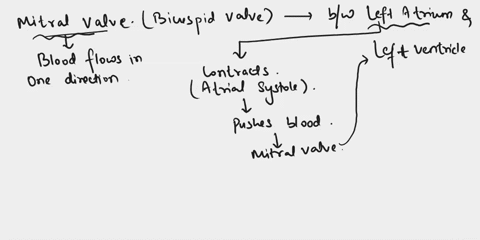 Mitral valve. (Bicuspid valve) → b/w Left Atrium &
Left ventricle
Blood flows in
One direction.
Contracts.
(Atrial Systole).
Pushes blood.
Mitral valve.